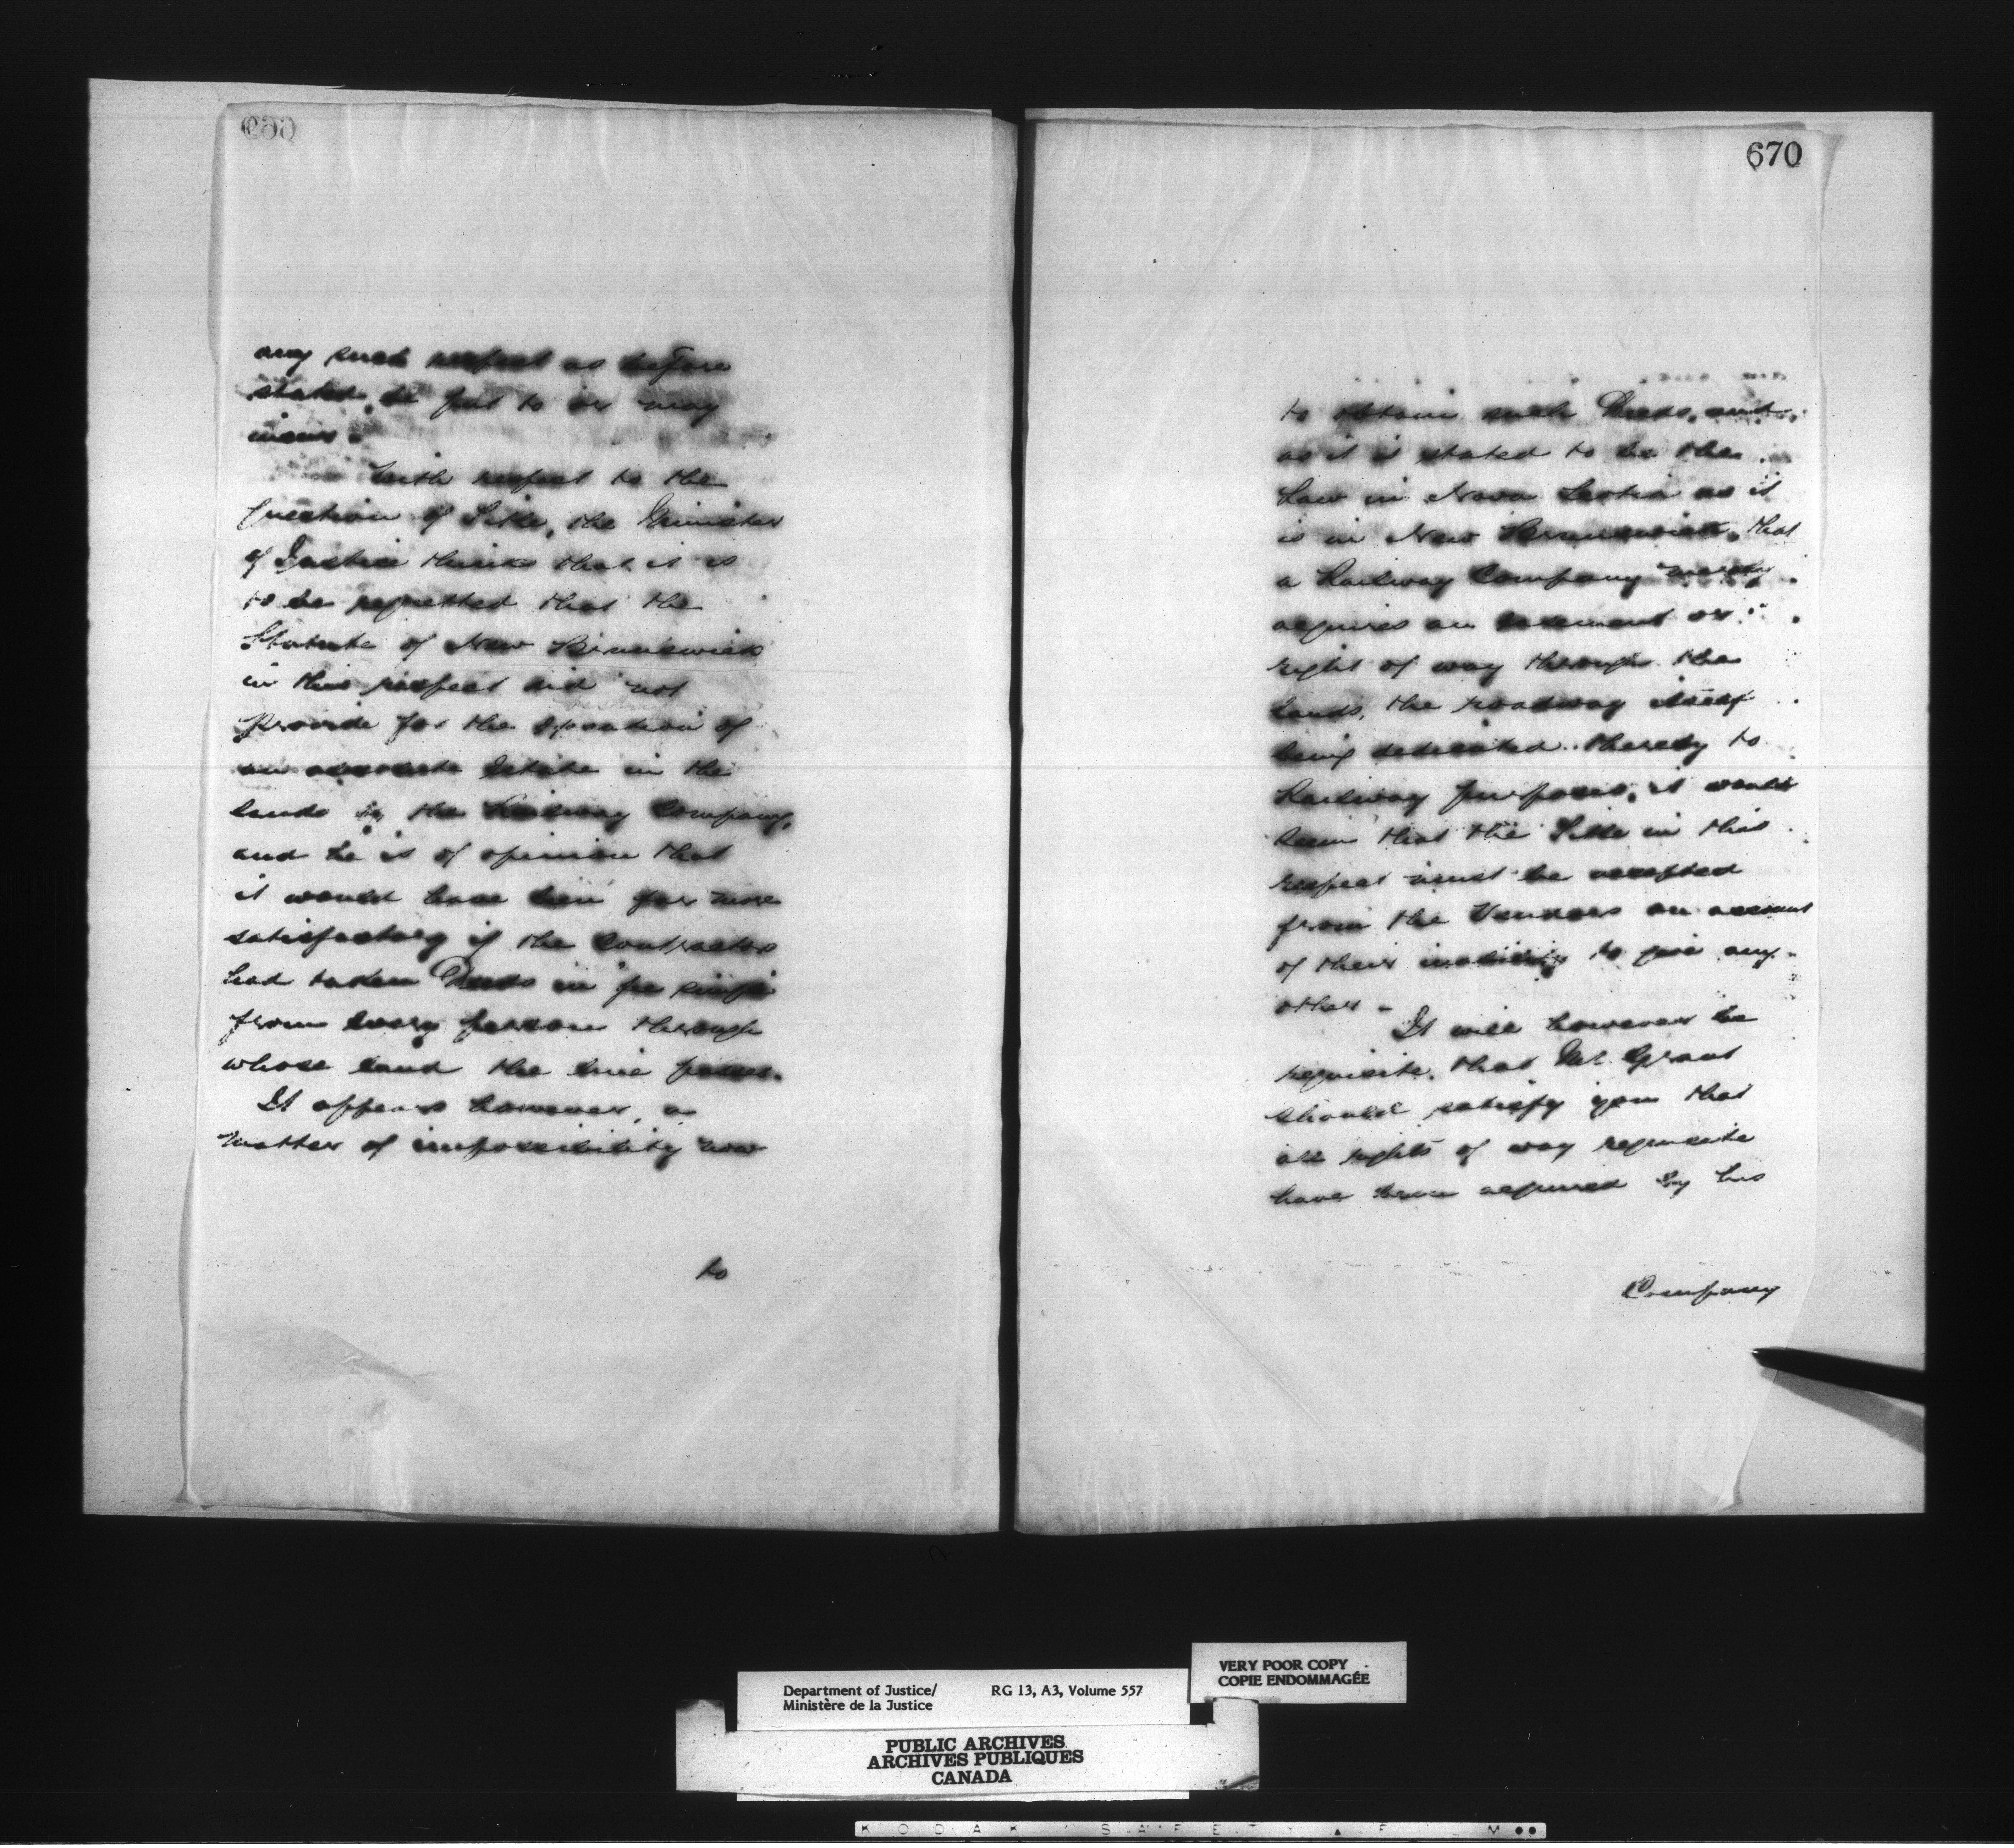 any such respect as before
stated, be put to or any
With respect to the
Question of Title, the Minister
of Justice thinks that it is
to be regretted that the
Statute of New Brunswick
in this respect did not
provide for the of
an absolute Estate in the
lands by the Railway Company,
and he is of opinion that
it would have been far more
satisfactory if the Contractors
had taken Deeds in fee simple
from every person through
whose land the line passes.
It appears however, a
matter of impossibility now
to
670
to obtain such Deeds, and,
as it is stated to be the
Law in Nova Scotia as it
is in New Brunswick, that
a Railway Company merely
acquires an easement or
right of way through the
lands, the roadway itself
being dedicated thereby to
Railway purposes, it would
seem that the Title in this
respect must be accepted
from the Vendors on account
of their inability to give any
other -
It will however be
requisite, that Mr. Grant
should satisfy you that
all rights of way requisite
have been acquired by his
Company
VERY POOR COPY
COPIE ENDOMMAGÉE
Department of Justice/ RG 13, A3, Volume 557
Ministère de la Justice
PUBLIC ARCHIVES
ARCHIVES PUBLIQUES
CANADA
KODAK SAFETY FILM